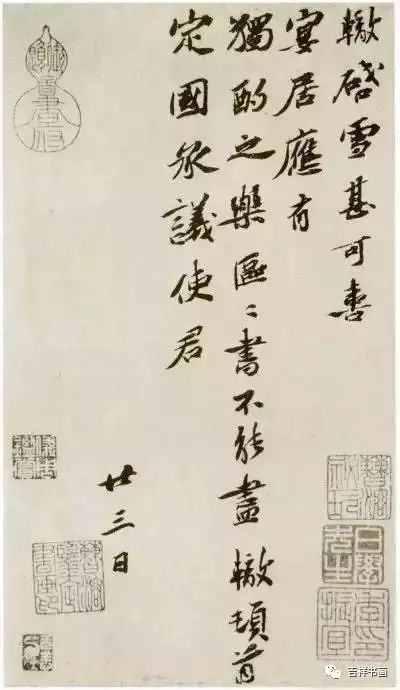 轍啓雪甚可喜
宴居應有
獨酌之樂區〻書不能盡轍頓首
定國承議使君
廿三日
吉祥书画